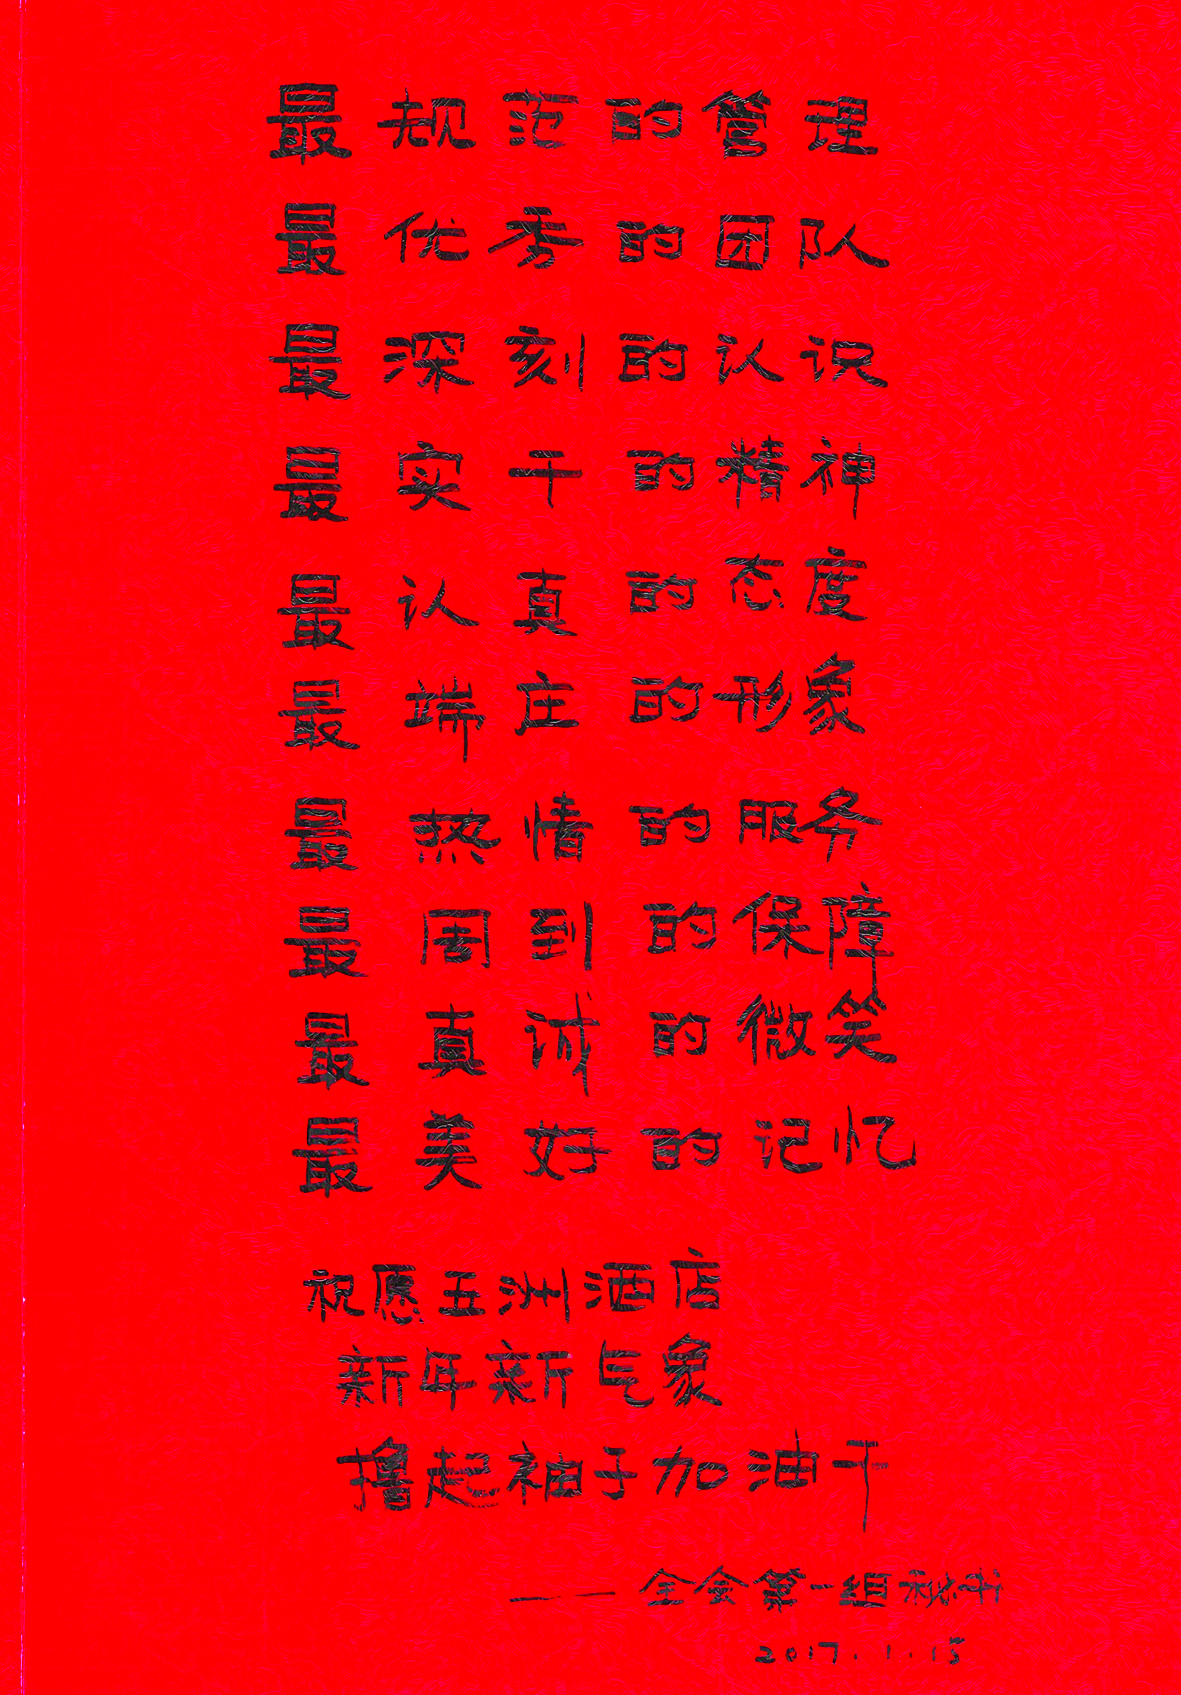 最规范的管理
最优秀的团队
最深刻的认识
最实干的精神
最认真的态度
最端庄的形象
最热情的服务
最周到的保障
最真诚的微笑
最美好的记忆
祝愿五洲酒店
新年新气象
撸起袖子加油干
——全会第一组秘书
2017.1.15